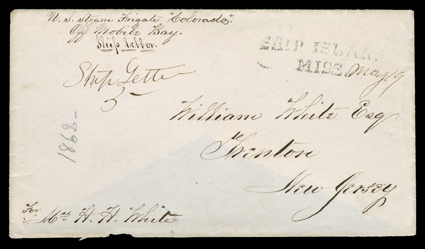 U. S. Steam Frigate "Colorado".
Off Mobile Bay.
Ship Letter.
SHIP ISLAND
MISS. May 9
Ship Letter
5
1863-
William White Esq
Trenton
New Jersey
For
Mrs H. H. White